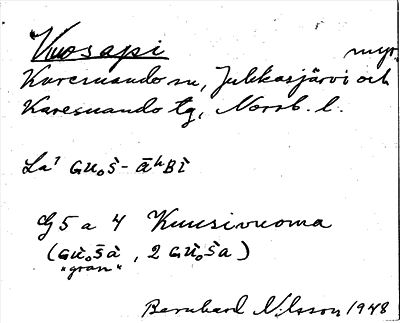 Vuosapi myr,
Karesuando sn, Jukkasjärvi och
Karesuando tg, Norrb. l.
La? Guₒš - āʰBi
G5 a 4 Kuusivuoma
(Guₒšà, 2 Guₒša)
"gran"
Bernhard Nilsson 1948